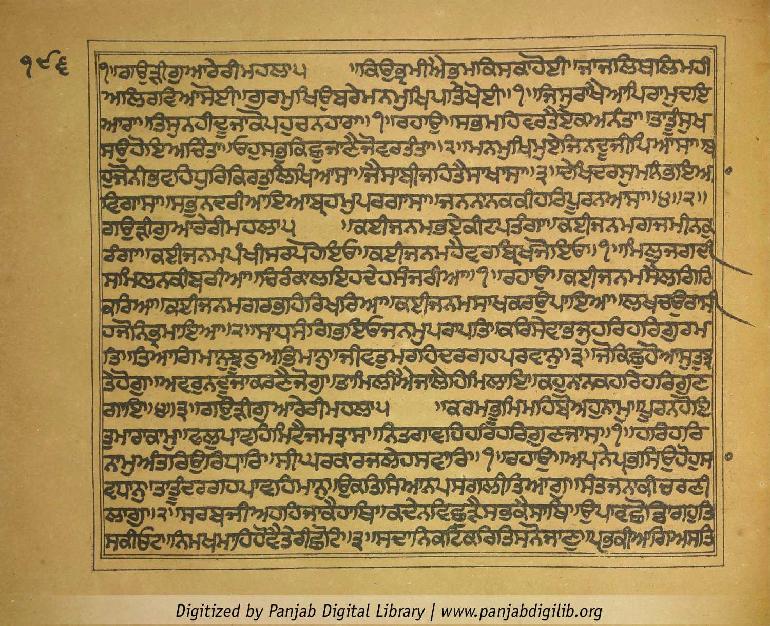 ੧੯੬
੧॥ਗਉੜੀਗੁਆਰੇਰੀਮਹਲਾ੫ ॥ਕਿਉਭ੍ਰਮੀਐਭ੍ਰਮਕਿਸਕਾਹੋਈ॥ਜਾਜਲਿਥਲਿਮਹੀ
ਅਲਿਰਵਿਆਸੋਈ॥ਗੁਰਮੁਖਿਉਬਰੇਮਨਮੁਖਿਪਤਿਖੋਈ॥੧॥ਜਿਸੁਰਾਖੈਆਪਿਰਾਮੁਦਇ
ਆਰਾ॥ਤਿਸੁਨਹੀਦੂਜਾਕੋਪਹੁਚਨਹਾਰਾ॥੧॥ਰਹਾਉ॥ਸਭਮਹਿਵਰਤੈਏਕੁਅਨੰਤਾ॥ਤਾਤੂੰਸੁਖਿ
ਸਉਹੋਇਅਚਿੰਤਾ॥ਓਹੁਸਭੁਕਿਛੁਜਾਣੈਜੋਵਰਤੰਤਾ॥੨॥ਮਨਮੁਖਿਮੁਏਜਿਨਦੂਜੀਪਿਆਸਾ॥ਬ
ਹੁਜੋਨੀਭਵਹਿਧੁਰਿਕਿਰਤੁਲਿਖਿਆਸਾ॥ਜੈਸਾਬੀਜਹਿਤੈਸਾਖਾਸਾ॥੩॥ਦੇਖਿਦਰਸੁਮਨਿਭਇਆ
ਵਿਗਾਸਾ॥ਸਭੁਨਦਰੀਆਇਆਬ੍ਰਹਮੁਪਰਗਾਸਾ॥ਜਨਨਾਨਕਕੀਹਰਿਪੂਰਨਆਸਾ॥੪॥੨॥
ਗਉੜੀਗੁਆਰੇਰੀਮਹਲਾ੫ ॥ਕਈਜਨਮਭਏਕੀਟਪਤੰਗਾ॥ਕਈਜਨਮਗਜਮੀਨਕੁ
ਰੰਗਾ॥ਕਈਜਨਮਪੰਖੀਸਰਪਹੋਇਓ॥ਕਈਜਨਮਹੈਵਰਬ੍ਰਿਖਜੋਇਓ॥੧॥ਮਿਲੁਜਗਦੀ
ਸਮਿਲਨਕੀਬਰੀਆ॥ਚਿਰੰਕਾਲਇਹਦੇਹਸੰਜਰੀਆ॥੧॥ਰਹਾਉ॥ਕਈਜਨਮਸੈਲਗਿਰਿ
ਕਰਿਆ॥ਕਈਜਨਮਗਰਭਹਿਰਿਖਰਿਆ॥ਕਈਜਨਮਸਾਖਕਰਉਪਾਇਆ॥ਲਖਚਉਰਾਸੀ
ਹਜੋਨਿਭ੍ਰਮਾਇਆ॥੨॥ਸਾਧਸੰਗਿਭਇਓਜਨਮੁਪਰਾਪਤਿ॥ਕਰਿਸੇਵਭਜੁਹਰਿਹਰਿਗੁਰਮ
ਤਿ॥ਤਿਆਗਿਮਾਨੁਝੂਠੁਅਭਿਮਾਨੁ॥ਜੀਵਤਮਰਹਿਦਰਗਹਪਰਵਾਨੁ॥੩॥ਜੋਕਿਛੁਹੋਆਸੁਤੁਝ
ਤੇਹੋਗੁ॥ਅਵਰੁਨਦੂਜਾਕਰਣੈਜੋਗੁ॥ਤਾਮਿਲੀਐਜਾਲੈਹਿਮਿਲਾਇ॥ਕਹੁਨਾਨਕਹਰਿਹਰਿਗੁਣ
ਗਾਇ॥੪॥੩॥ਗਉੜੀਗੁਆਰੇਰੀਮਹਲਾ੫ ॥ਕਰਮਭੂਮਿਮਹਿਬੋਅਹੁਨਾਮੁ॥ਪੂਰਨਹੋਇ
ਤੁਮਾਰਾਕਾਮੁ॥ਫਲੁਪਾਵਹਿਮਿਟੈਜਮਤ੍ਰਾਸ॥ਨਿਤਗਾਵਹਿਹਰਿਹਰਿਗੁਣਜਾਸ॥੧॥ਹਰਿਹਰਿ
ਨਾਮੁਅੰਤਰਿਉਰਿਧਾਰਿ॥ਸੀਘਰਕਾਰਜਲੇਹੁਸਵਾਰਿ॥੧॥ਰਹਾਉ॥ਅਪਨੇਪ੍ਰਭਸਿਉਹੋਹੁਸਾ
ਵਧਾਨੁ॥ਤਾਤੂੰਦਰਗਹਪਾਵਹਿਮਾਨੁ॥ਉਕਤਿਸਿਆਨਪਸਗਲੀਤਿਆਗੁ॥ਸੰਤਜਨਾਕੀਚਰਣੀ
ਲਾਗੁ॥੨॥ਸਰਬਜੀਅਹਹਿਜਾਕੈਹਾਥਿ॥ਕਦੇਨਵਿਛੁੜੈਸਭਕੈਸਾਥਿ॥ਉਪਾਵਛੋਡਿਗਹੁਤਿ
ਸਕੀਓਟ॥ਨਿਮਖਮਾਹਿਹੋਵੈਤੇਰੀਛੋਟਿ॥੩॥ਸਦਾਨਿਕਟਿਕਰਿਤਿਸਨੋਜਾਣੁ॥ਪ੍ਰਭਕੀਆਗਿਆਸਤਿ
Digitized by Panjab Digital Library | www.panjabdigilib.org